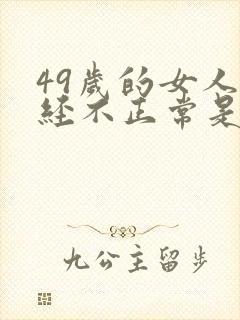 49歲的女人
經不正常是
九公主留步